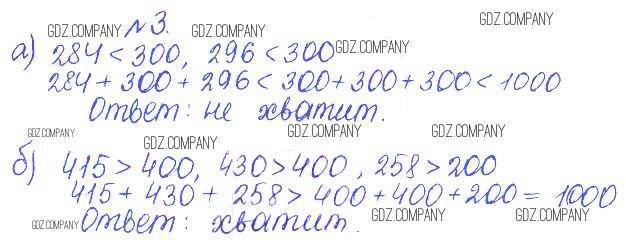 GDZ.COMPANY № 3. GDZ.COMPANY
а) 284 < 300, 296 < 300 GDZ.COMPANY
284 + 300 + 296 < 300 + 300 + 300 < 1000
Ответ: не хватит.
GDZ.COMPANY GDZ.COMPANY GDZ.COMPANY GDZ.COMPANY
б) 415 > 400, 430 > 400, 258 > 200
415 + 430 + 258 > 400 + 400 + 200 = 1000
GDZ.COMPANY Ответ: хватит. GDZ.COMPANY GDZ.COMPANY